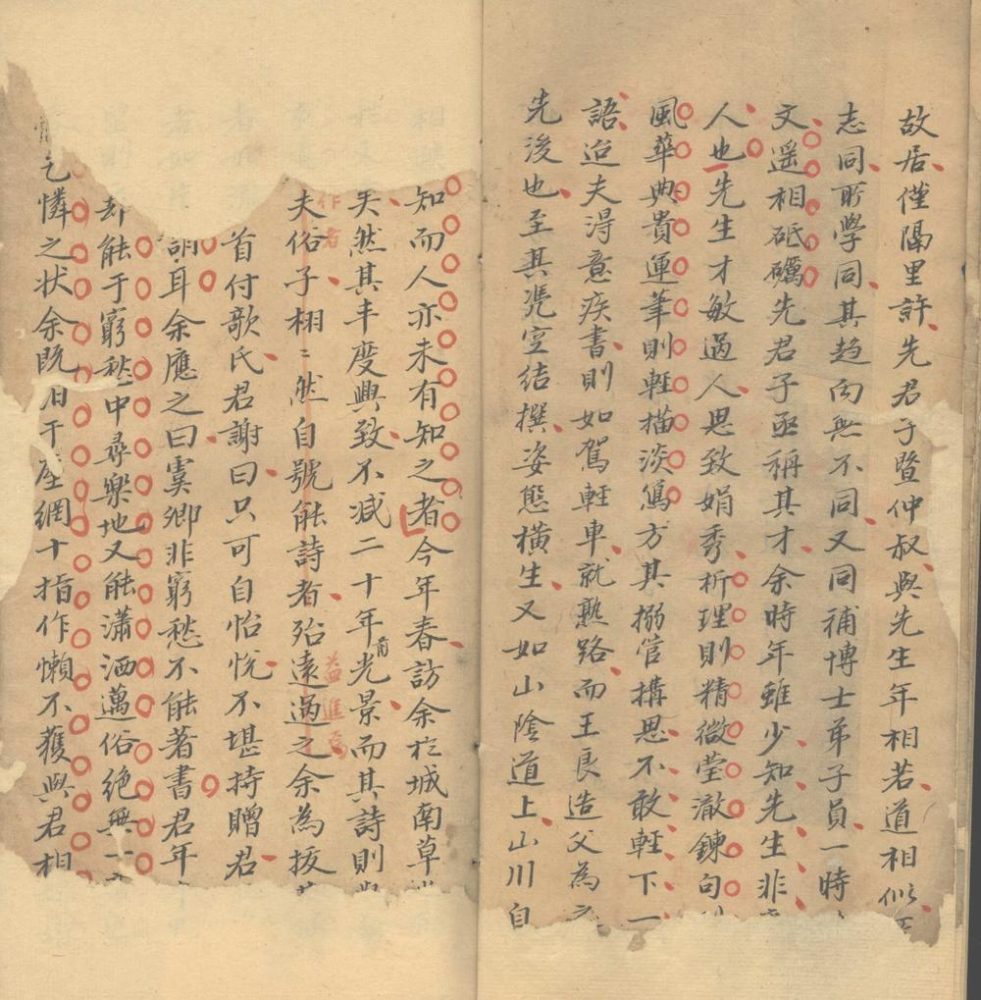 故居僅隔里許先君子暨仲叔與先生年相若道相似
志同所學同其趋向無不同又同補博士弟子員一時
文遥相砥礪先君子亟稱其才余時年雖少知先生非
人也先生才敏過人思致娟秀析理則精微瑩澈鍊句
風華典貴運筆則輕描淡寫方其搦管搆思不敢輕下一
語迨夫淂意疾書則如駕輕車就熟路而王良造父為之
先後也至其憑空結撰姿態橫生又如山陰道上山川自
知而人亦未有知之者今年春訪余於城南草
矣然其丰度興致不减二十年前光景而其詩則
作者
益進焉
夫俗子栩〻然自號能詩者殆遠過之余為援
首付歌氏君謝曰只可自怡悦不堪持贈君
耳余應之曰虞卿非窮愁不能著書君年
却能于窮愁中尋樂地又能瀟洒邁俗絕無一
乞憐之状余既汩于塵網十指作懶不獲與君相